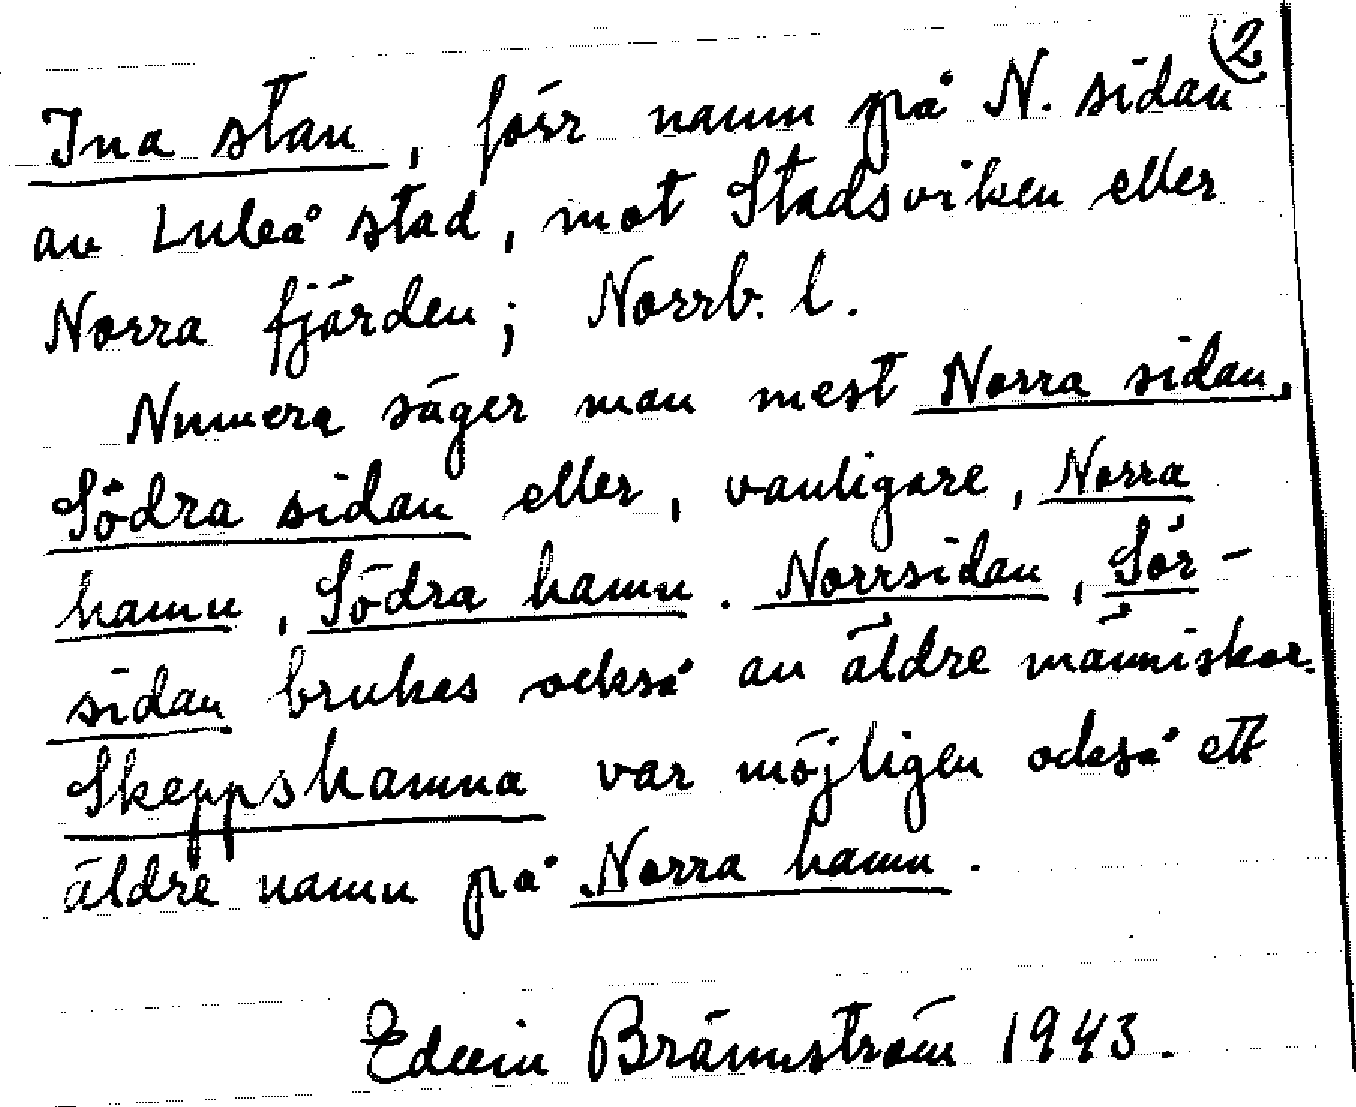 2
Ina stan, förr namn på N. sidan
av Luleå stad, mot Stadsviken eller
Norra fjärden; Norrb. l.
Numera säger man mest Norra sidan,
Södra sidan eller, vanligare, Norra
hamn, Södra hamn. Norrsidan, Sör-
sidan brukas också av äldre människor.
Skeppshamna var möjligen också ett
äldre namn på Norra hamn.
Edvin Brännström 1943.